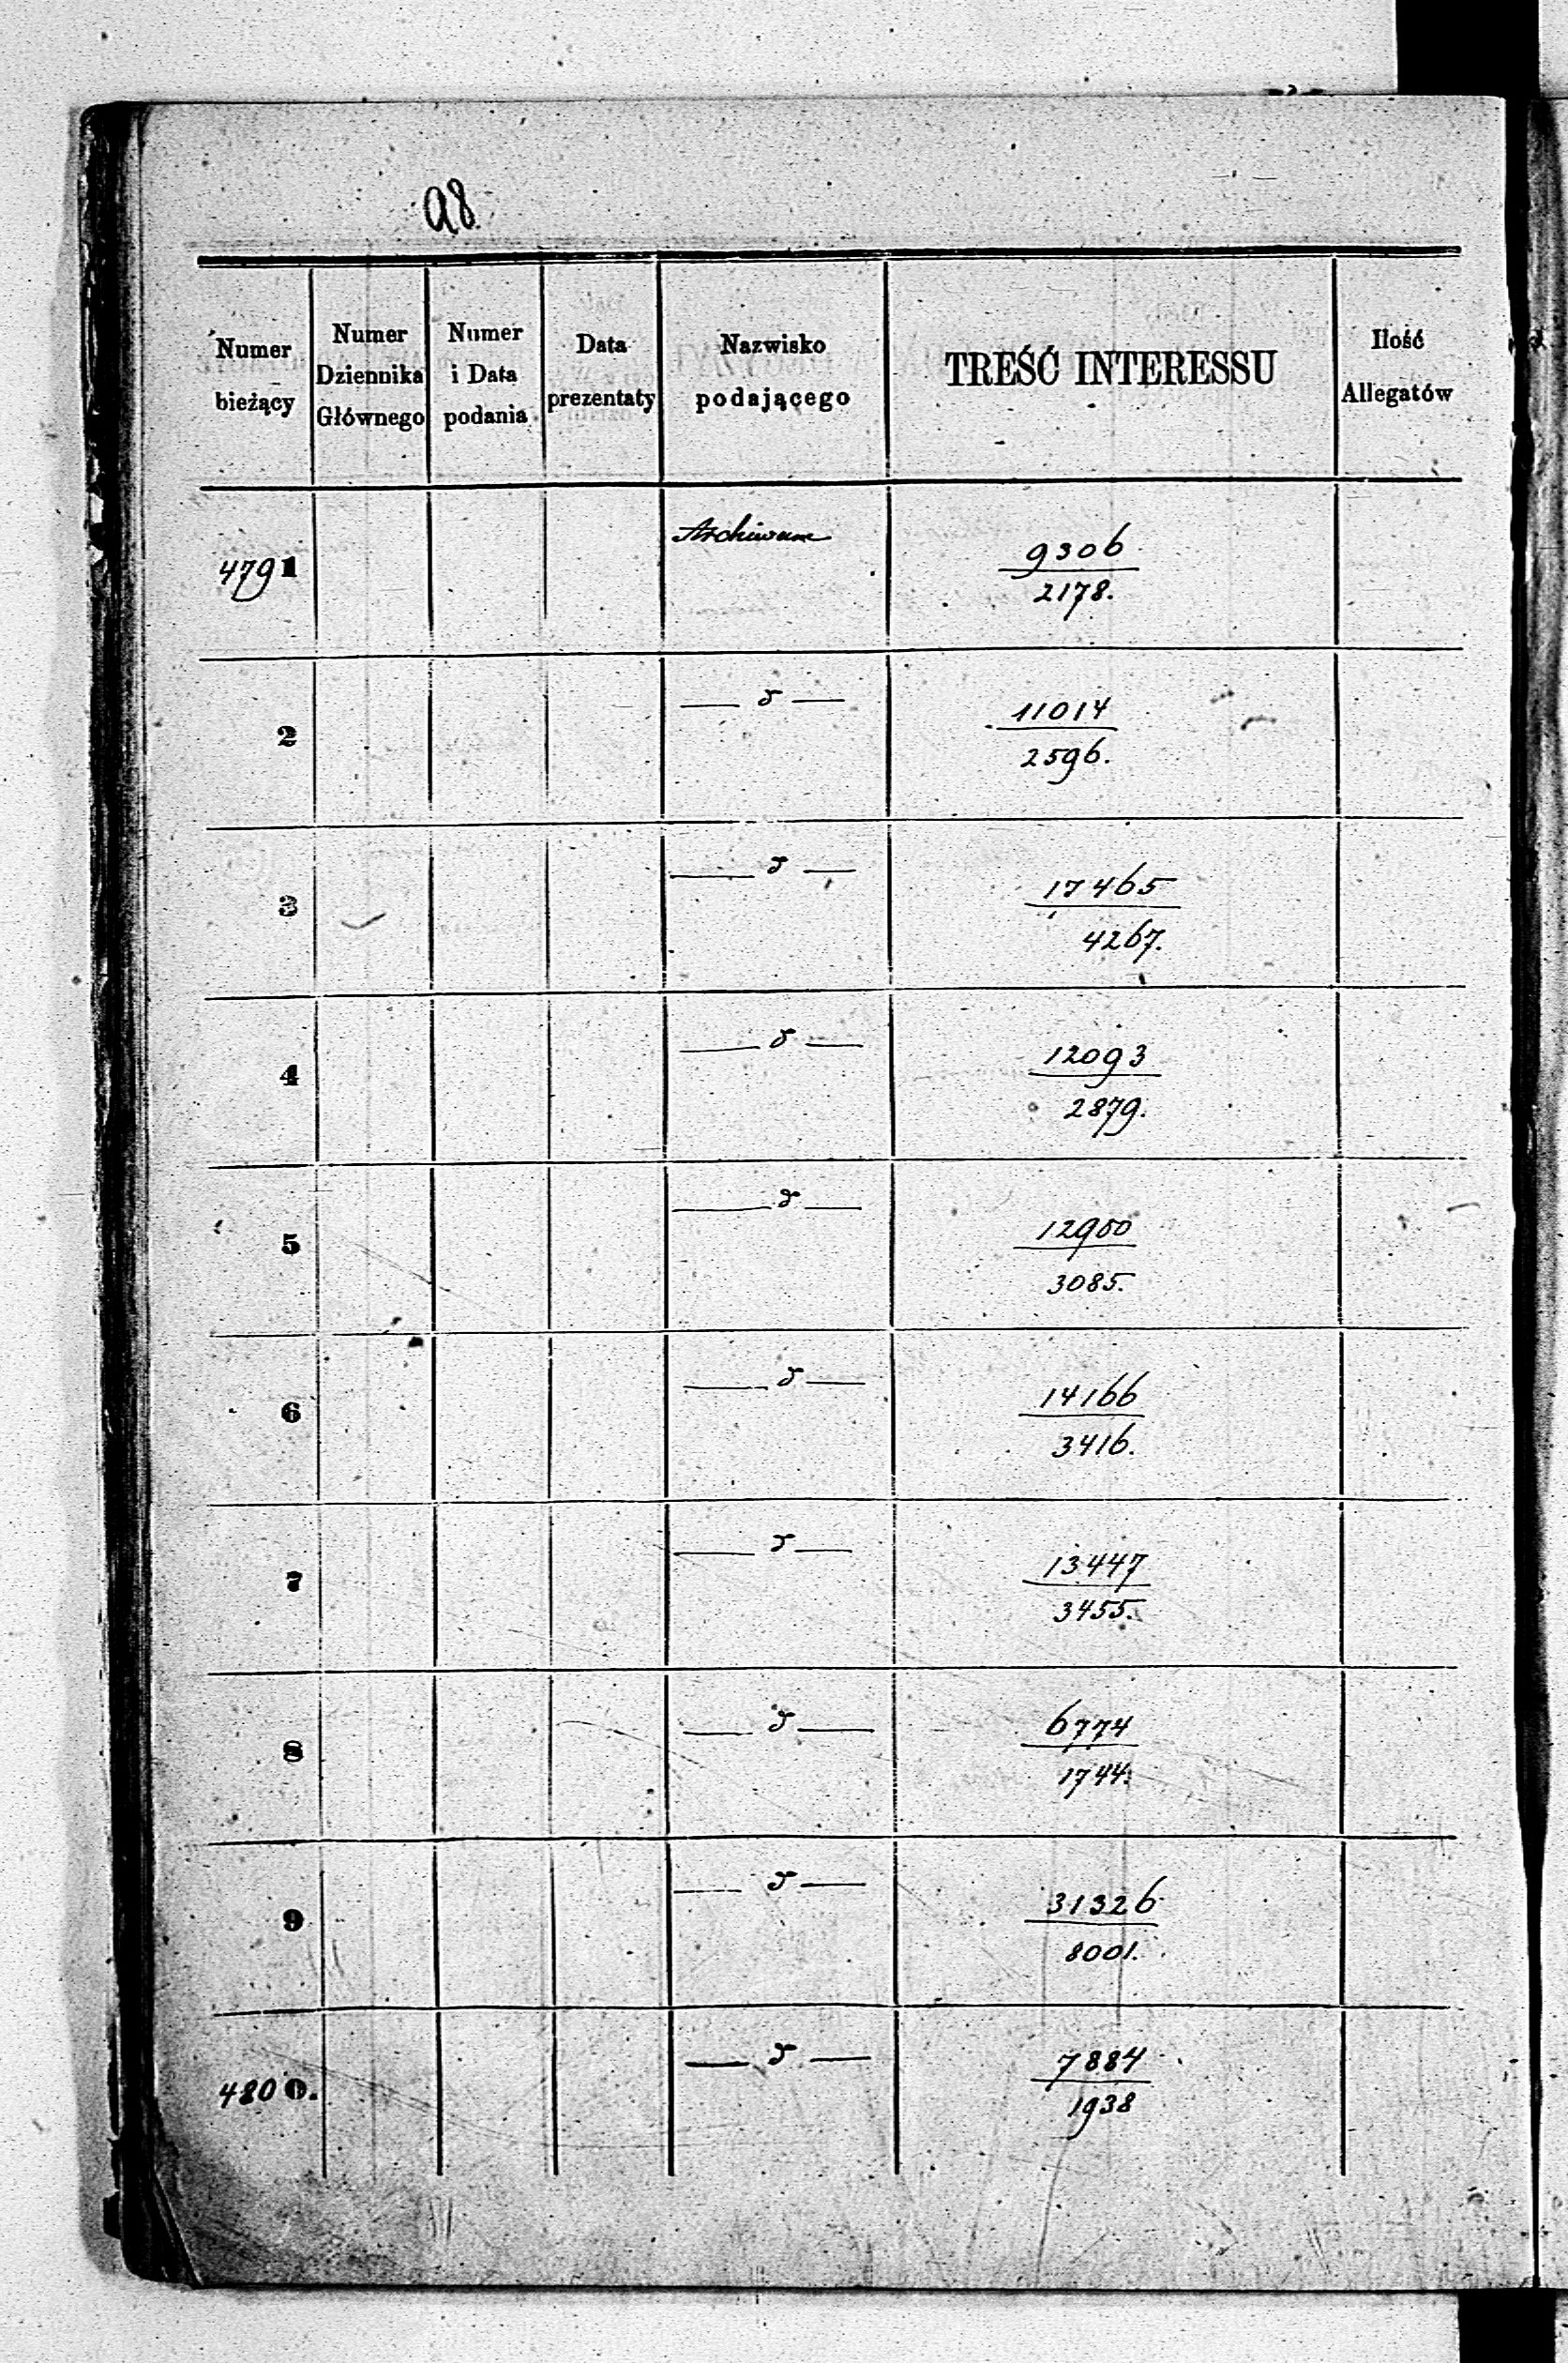 98.
Numer bieżący
Numer Dziennika Głównego
Numer i Data podania
Data prezentaty
Nazwisko podającego
TREŚĆ INTERESSU
Ilość Allegatów
4791 Archiwum 9306
2178.
2 — d — 11014
2596.
3 — d — 17465
4267.
4 — d — 12093
2879.
5 — d — 12950
3085.
6 — d — 14166
3416.
7 — d — 13447
3455.
8 — d — 6774
1744.
9 — d — 31326
8001.
4800. — d — 7884
1938